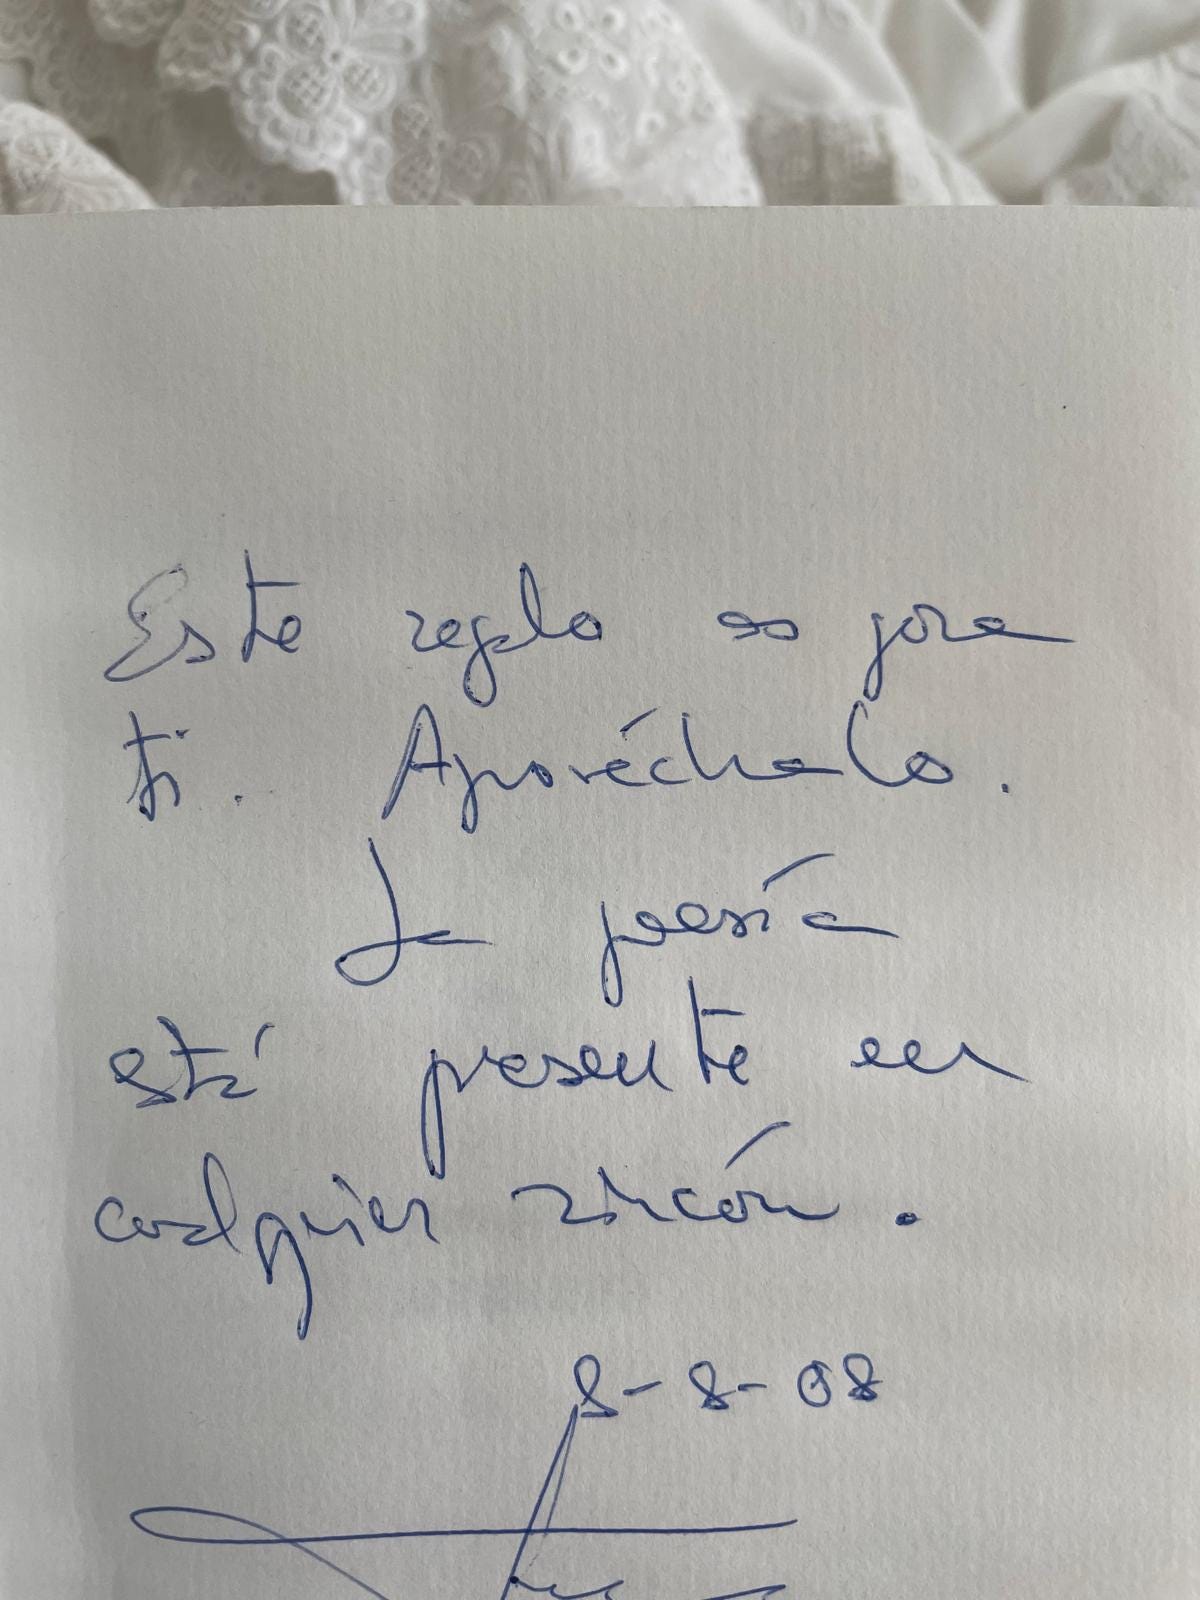 Este regalo es para
ti. Aprovéchalo.
La poesía
está presente en
cualquier rincón.
8-8-08